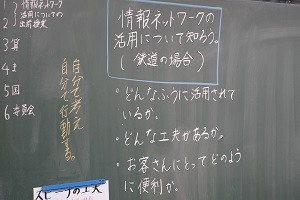 1 情報ネットワーク
2 活用についての
出前授業
3 算
4
5 国
6 委員会
自分で考え
自分で行動する。
情報ネットワークの
活用について知ろう。
(鉄道の場合)
・どんなふうに活用されて
いるか。
・どんな工夫があるか。
・お客さんにとってどのよう
に便利か。